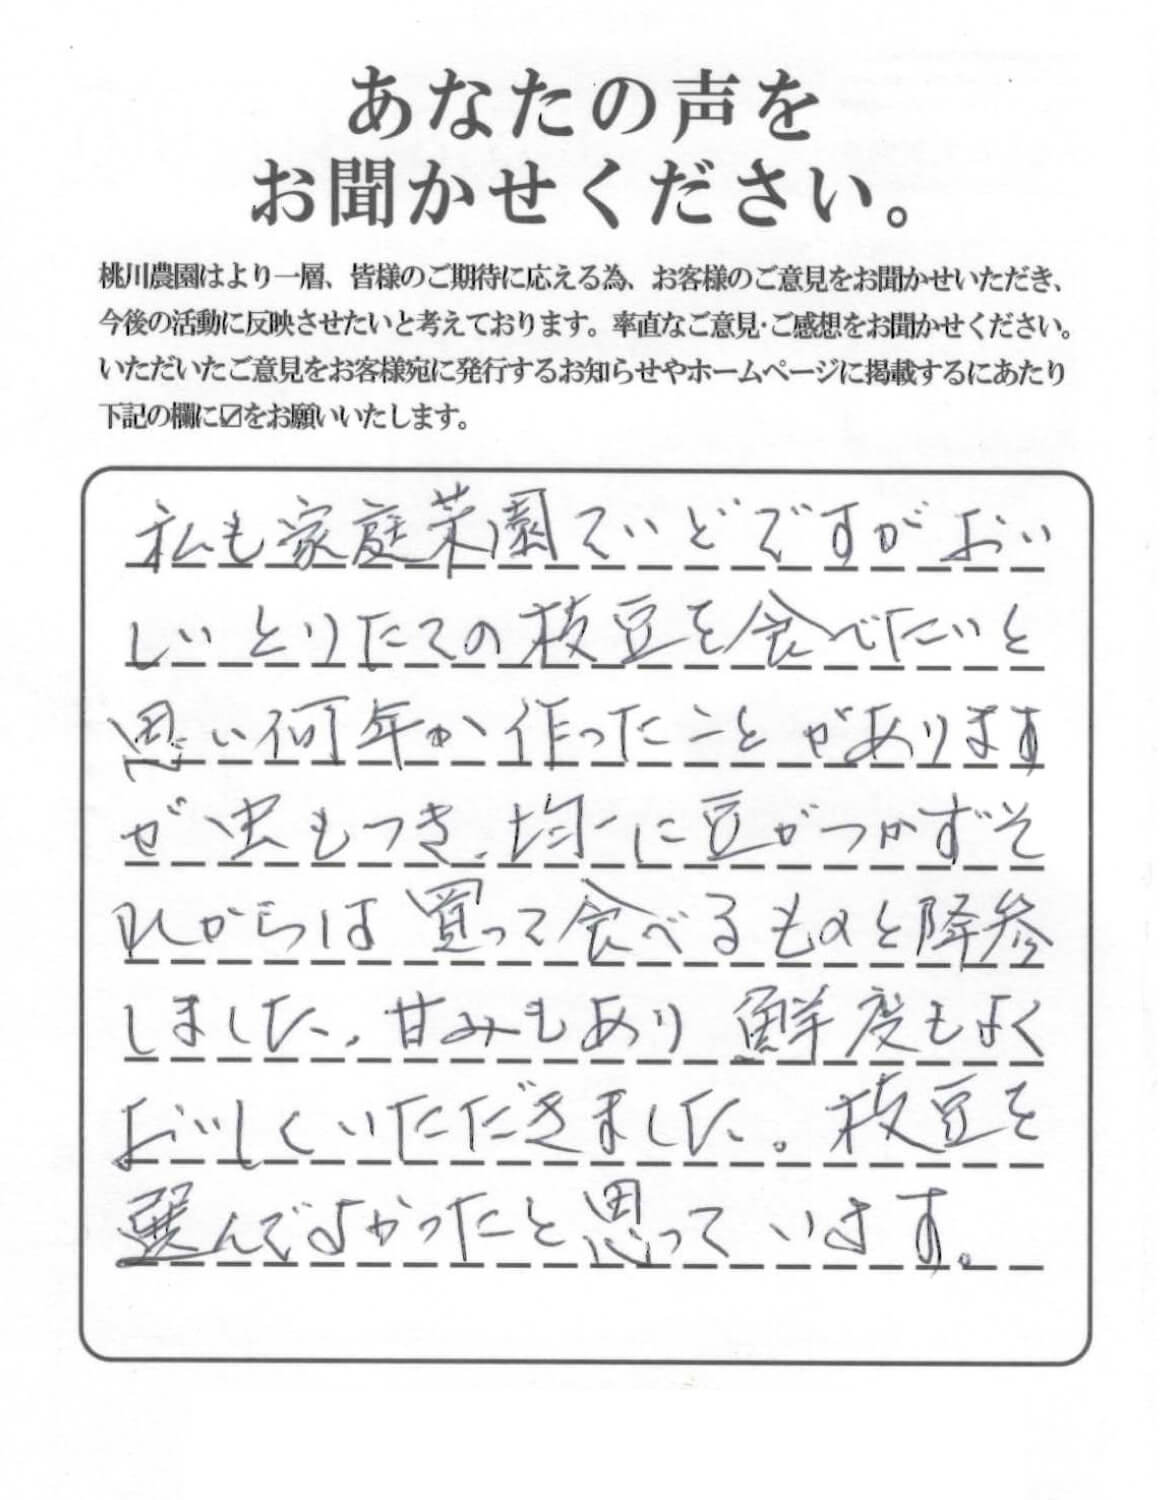 あなたの声を
お聞かせください。
桃川農園はより一層、皆様のご期待に応える為、お客様のご意見をお聞かせいただき、
今後の活動に反映させたいと考えております。率直なご意見・ご感想をお聞かせください。
いただいたご意見をお客様宛に発行するお知らせやホームページに掲載するにあたり
下記の欄に☑をお願いいたします。
私も家庭菜園ていどですがおい
しいとりたての枝豆を食べたいと
思い何年か作ったことがあります
が虫もつき、均一に豆がつかずそ
れからは買って食べるものと降参
しました。甘みもあり鮮度もよく
おいしくいただきました。枝豆を
選んでよかったと思っています。